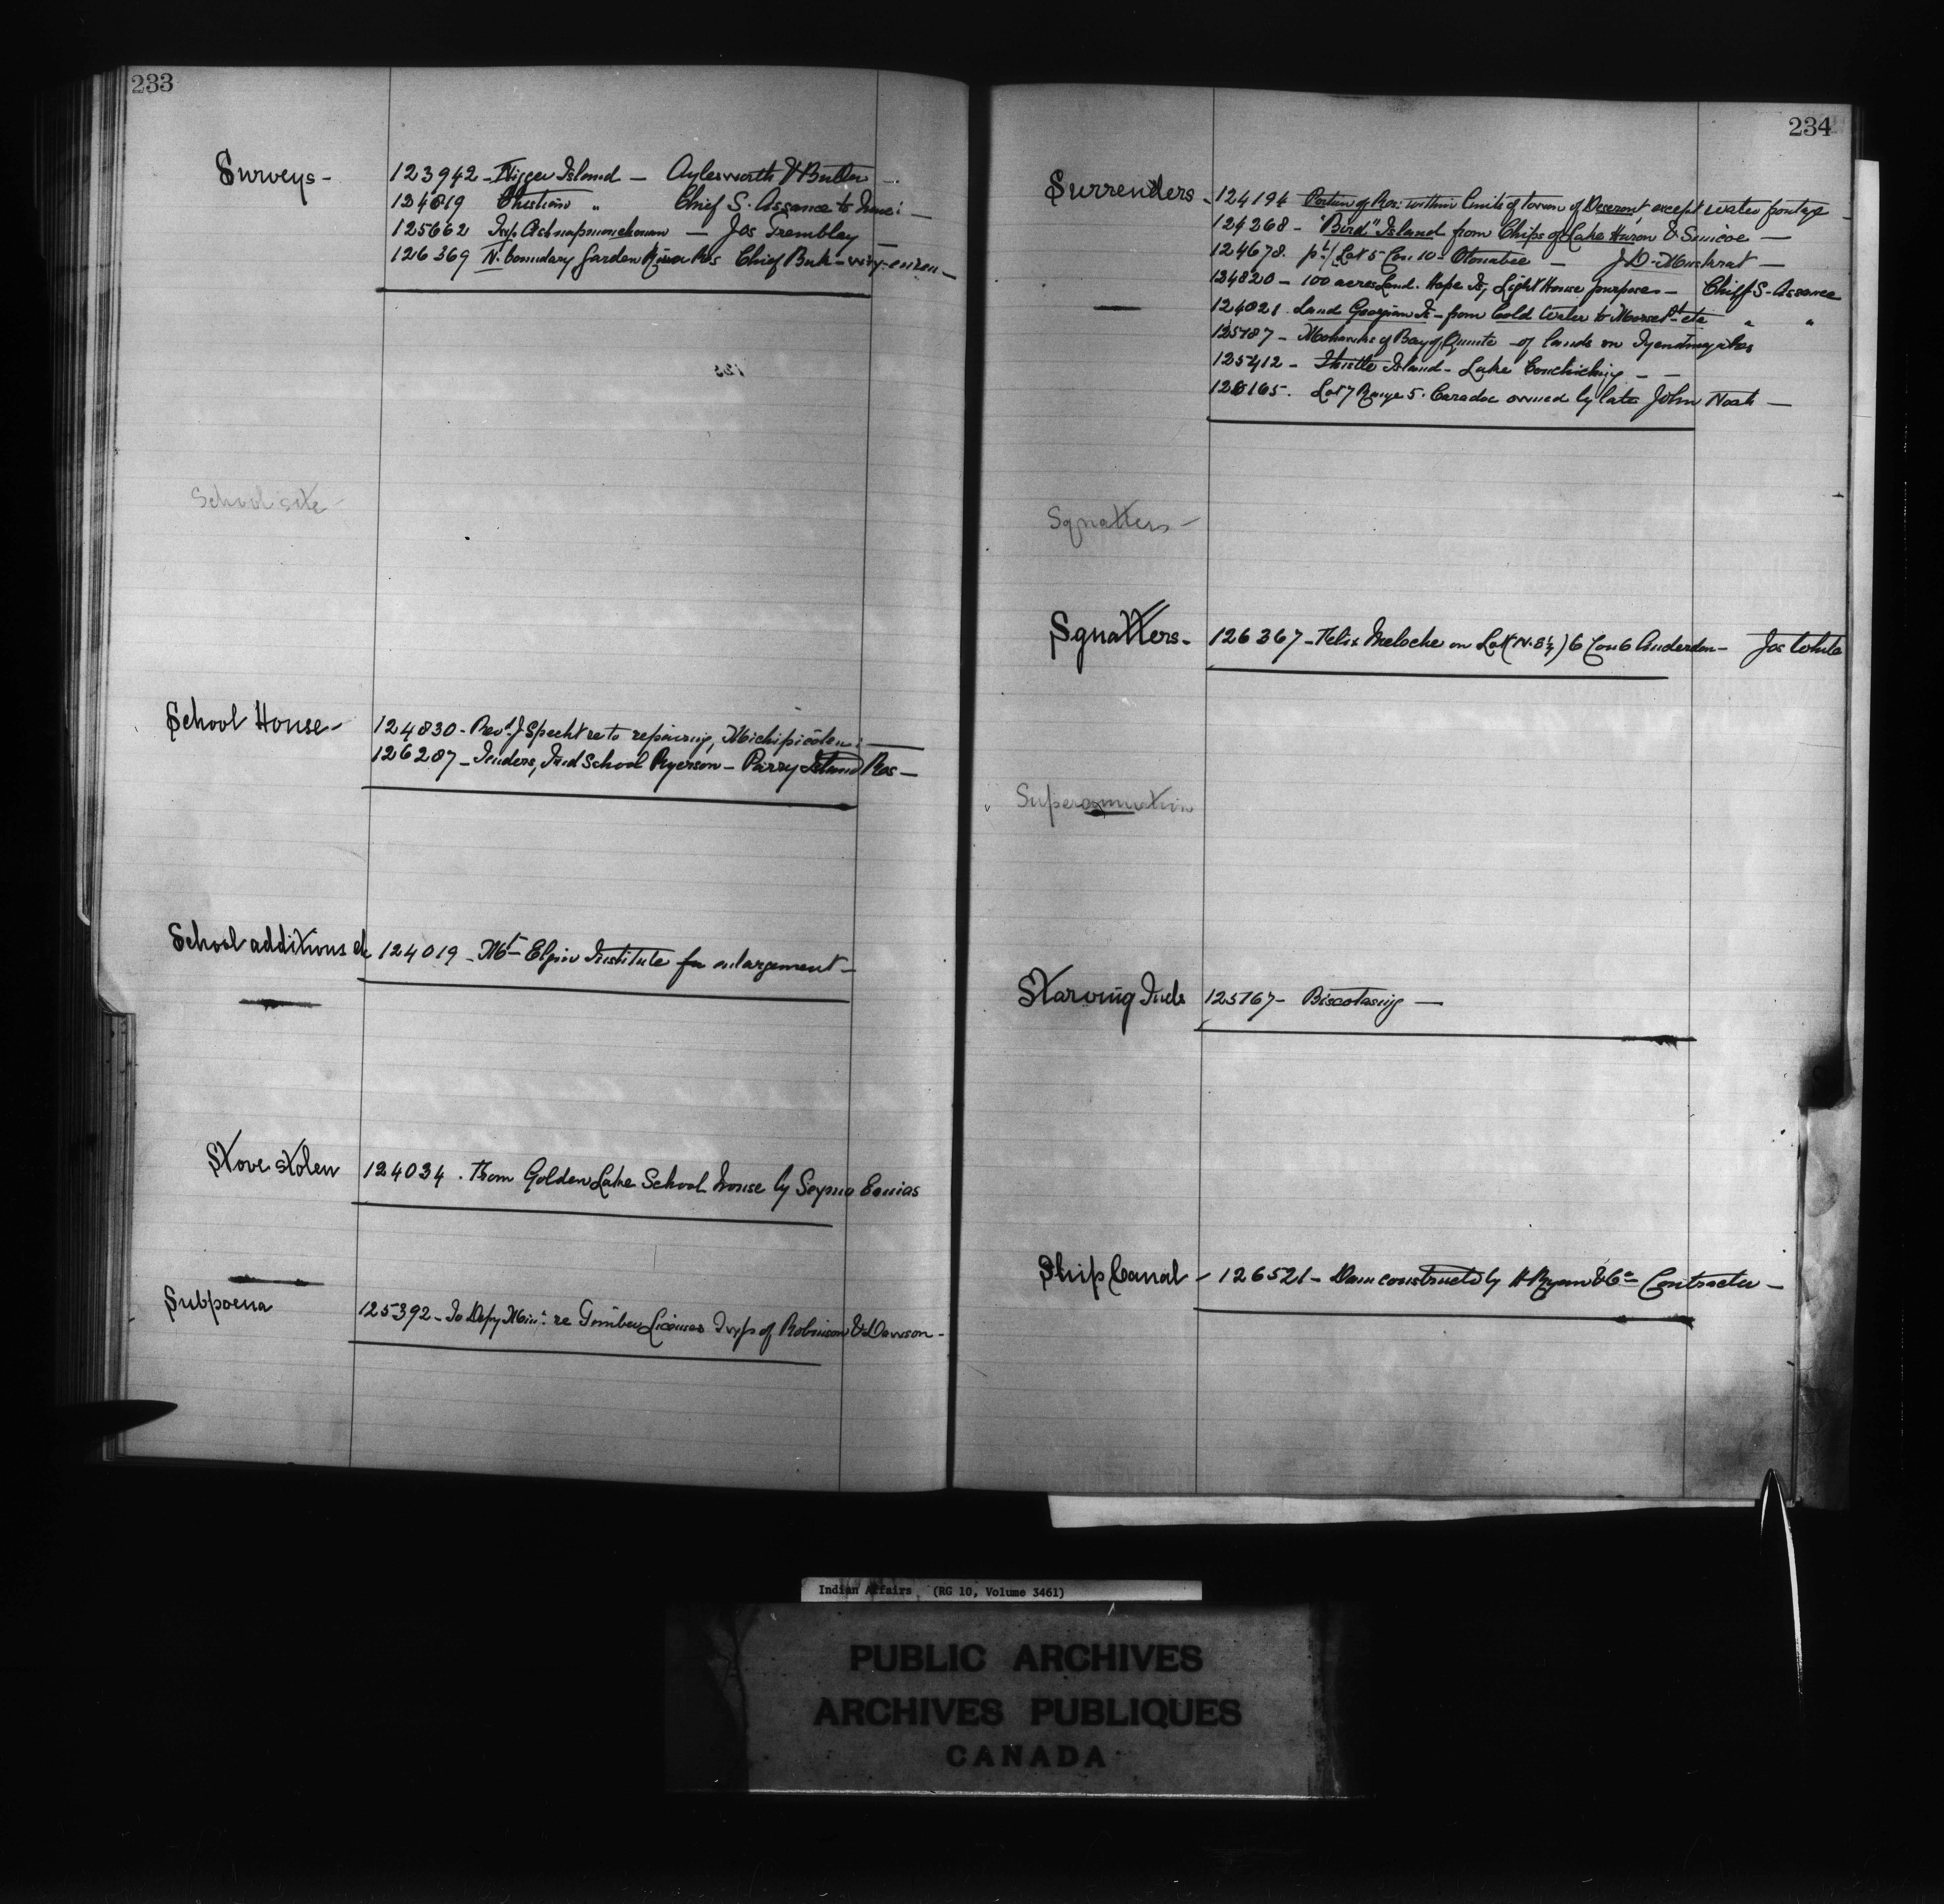 233
Surveys - 123942 - Nigger Island - Aylesworth & Butler -
124819 Christian " Chief S. Assance to have: -
125662 Twp. - Jos Tremblay -
126369 N. boundary Garden River Res Chief Buh-
School site -
School House - 124830 - Revd. J Specht re to repairing, Michipicoten: -
126287 - Tenders, Ind School Ryerson - Parry Island Res -
School additions &c 124019 - Mt Elgin Institute for enlargement -
Stove stolen 124034 . From Golden Lake School house by
Subpoena 125392 - To Depy Min: re Timber Licenses Twps of Robinson & Dawson -
234
Surrenders - 124194 Portion of Res: within limits of town of Deseront, except water frontage -
124268 - "Bird" Island from Chips of Lake Huron & Simcoe -
124678. pt/ Lot 5 Con 10 - Otonabee - J.D. Muskrat -
124820 - 100 acres Land. Hope Is, Light House purposes - Chief S. Assance
124821 . Land Georgian - from Cold Water to etc " "
125187 - Mohawks of Bay of Quinte - of lands on
125412 - Thistle Island - Lake Couchiching - -
126165. Lot 7 Range 5. Caradoc owned by late John Noah -
Squatters -
Squatters - 126367 - Felix Meloche on Lot (N. E ½) 6 Con 6 Anderdon - Jos White
Superannuation
Starving Inds 125767 - Biscotasing -
Ship Canal - 126521 - Dam constructed by H Ryan & Co - Contractor -
Indian Affairs (RG 10, Volume 3461)
PUBLIC ARCHIVES
ARCHIVES PUBLIQUES
CANADA